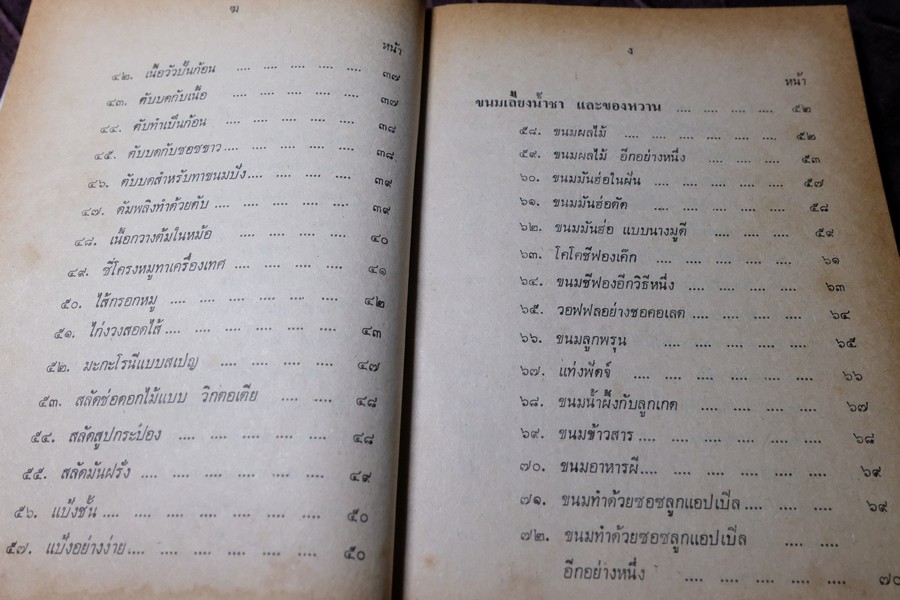 ฆ
หน้า
๔๒. เนื้อวัวปั้นก้อน .... .... .... .... .... ๓๗
๔๓. ตับบดกับเนื้อ .... .... .... .... .... ๓๗
๔๔. ตับทำเป็นก้อน .... .... .... .... .... ๓๘
๔๕. ตับบดกับซอชขาว .... .... .... .... .... ๓๘
๔๖. ตับบดสำหรับทาขนมปัง .... .... .... .... .... ๓๙
๔๗. ดัมพลิงทำด้วยตับ .... .... .... .... .... ๓๙
๔๘. เนื้อกวางต้มในหม้อ .... .... .... .... .... ๔๐
๔๙. ซี่โครงหมูทาเครื่องเทศ .... .... .... .... .... ๔๑
๕๐. ไส้กรอกหมู .... .... .... .... .... .... ๔๒
๕๑. ไก่งวงสอดไส้ .... .... .... .... .... .... ๔๓
๕๒. มะกะโรนีแบบสเปญ .... .... .... .... .... ๔๗
๕๓. สลัดช่อดอกไม้แบบ วิกตอเตีย .... .... ๔๘
๕๔. สลัดสูปกระป๋อง .... .... .... .... .... ๔๘
๕๕. สลัดมันฝรั่ง .... .... .... .... .... .... ๔๙
๕๖. แป้งชั้น .... .... .... .... .... .... .... ๕๐
๕๗. แป้งอย่างง่าย .... .... .... .... .... .... ๕๐
ง
หน้า
ขนมเลี้ยงน้ำชา และของหวาน .... .... .... .... ๕๒
๕๘. ขนมผลไม้ .... .... .... .... .... .... ๕๒
๕๙. ขนมผลไม้ อีกอย่างหนึ่ง .... .... .... ๕๓
๖๐. ขนมมันฮ่อในฝัน .... .... .... .... .... ๕๗
๖๑. ขนมมันฮ่อตัด .... .... .... .... .... ๕๘
๖๒. ขนมมันฮ่อ แบบนางมูดี .... .... .... ๕๙
๖๓. โคโคชีฟองเค๊ก .... .... .... .... .... ๖๑
๖๔. ขนมชีฟองอีกวิธีหนึ่ง .... .... .... .... ๖๓
๖๕. วอฟฟลอย่างชอคอเลต .... .... .... .... ๖๔
๖๖. ขนมลูกพรุน .... .... .... .... .... ๖๕
๖๗. แท่งฟัดจ์ .... .... .... .... .... .... ๖๖
๖๘. ขนมน้ำผึ้งกับลูกเกด .... .... .... .... ๖๗
๖๙. ขนมข้าวสาร .... .... .... .... .... .... ๖๘
๗๐. ขนมอาหารผี .... .... .... .... .... .... ๖๙
๗๑. ขนมทำด้วยซอซลูกแอปเปิ้ล .... .... .... ๖๙
๗๒. ขนมทำด้วยซอซลูกแอปเปิ้ล .... ....
อีกอย่างหนึ่ง .... .... .... .... .... ๗๐